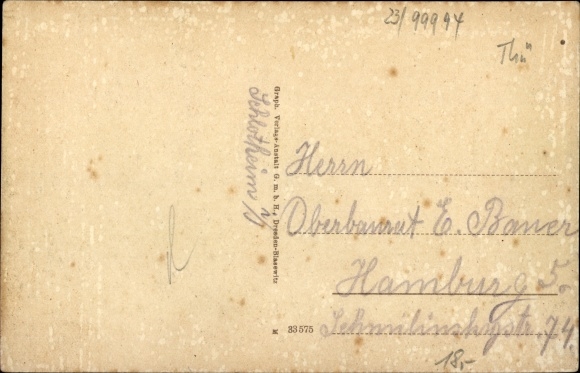 23/99994
Thü
Graph. Verlags-Anstalt G. m. b. H., Dresden-Blasewitz
Schlotheim
Herrn
Oberbaurat E. Bauer
Hamburg 5.
Schmilinskystr. 74.
M 33575
18,-